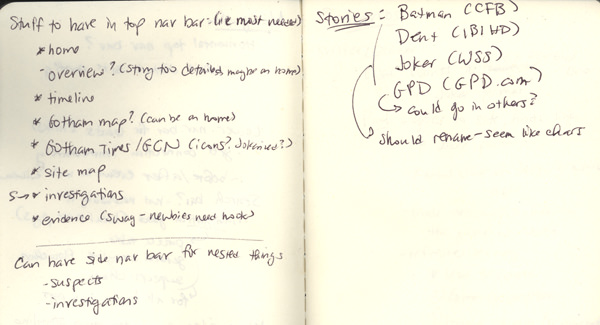 Stuff to have in top nav bar: (ie most needed)
* home
- overview? (story too detailed, maybe on home)
* timeline
* Gotham map? (can be on home)
* Gotham Times/GCN (icons? Jokerized?)
* site map
S→* investigations
* evidence (swag - newbies need hook)
Can have side nav bar for nested things
- suspects
- investigations
Stories: Batman (CFB)
Dent (IBIHD)
Joker (WSS)
GPD (GPD.com)
↳ could go in others?
↳ should rename - seem like chars